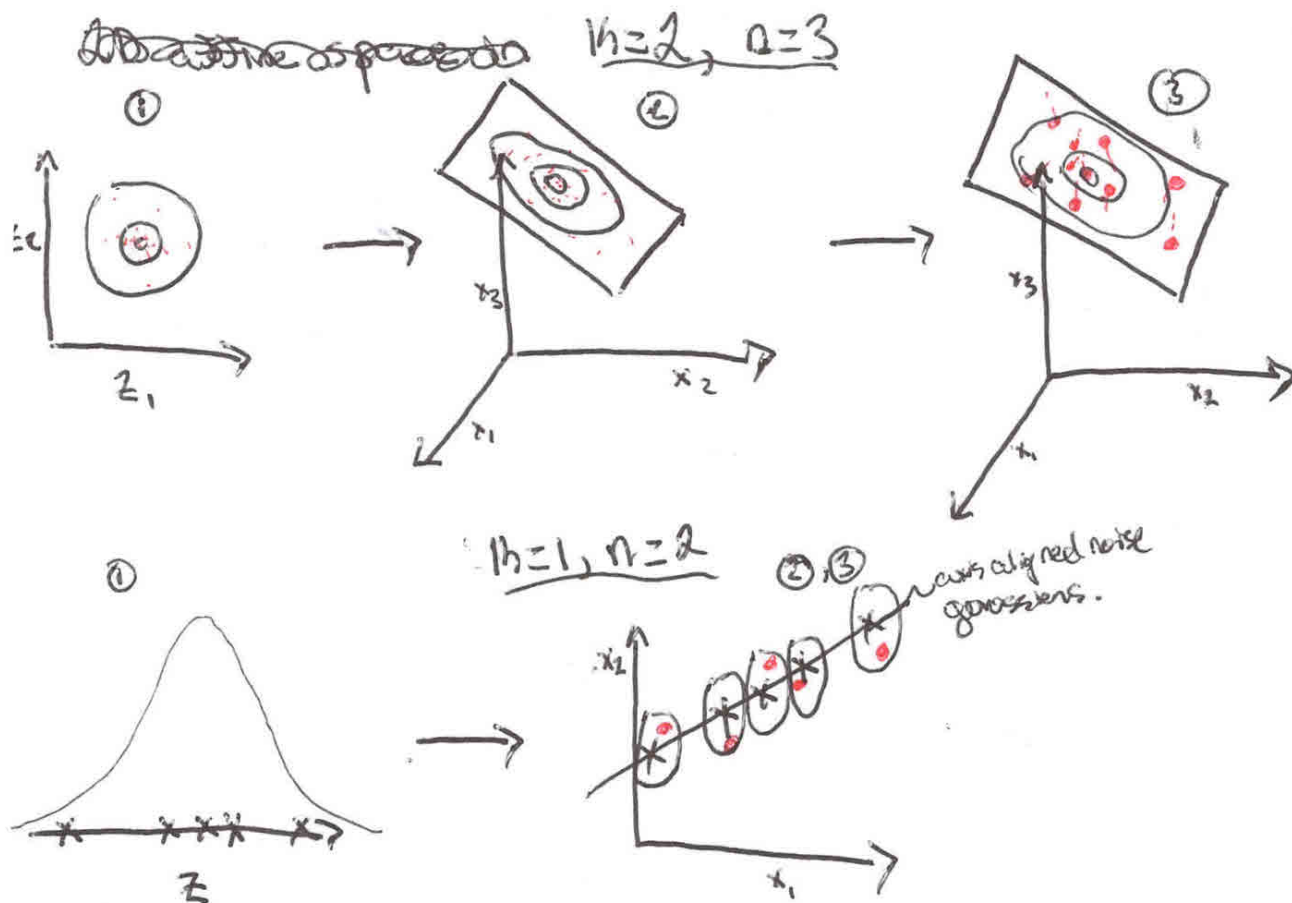 k=2, n=3
①
②
③
z₁
x₃
x₂
x₁
x₃
x₂
x₁
k=1, n=2
①
②,③
axis aligned noise
gaussians.
x₂
z
x₁